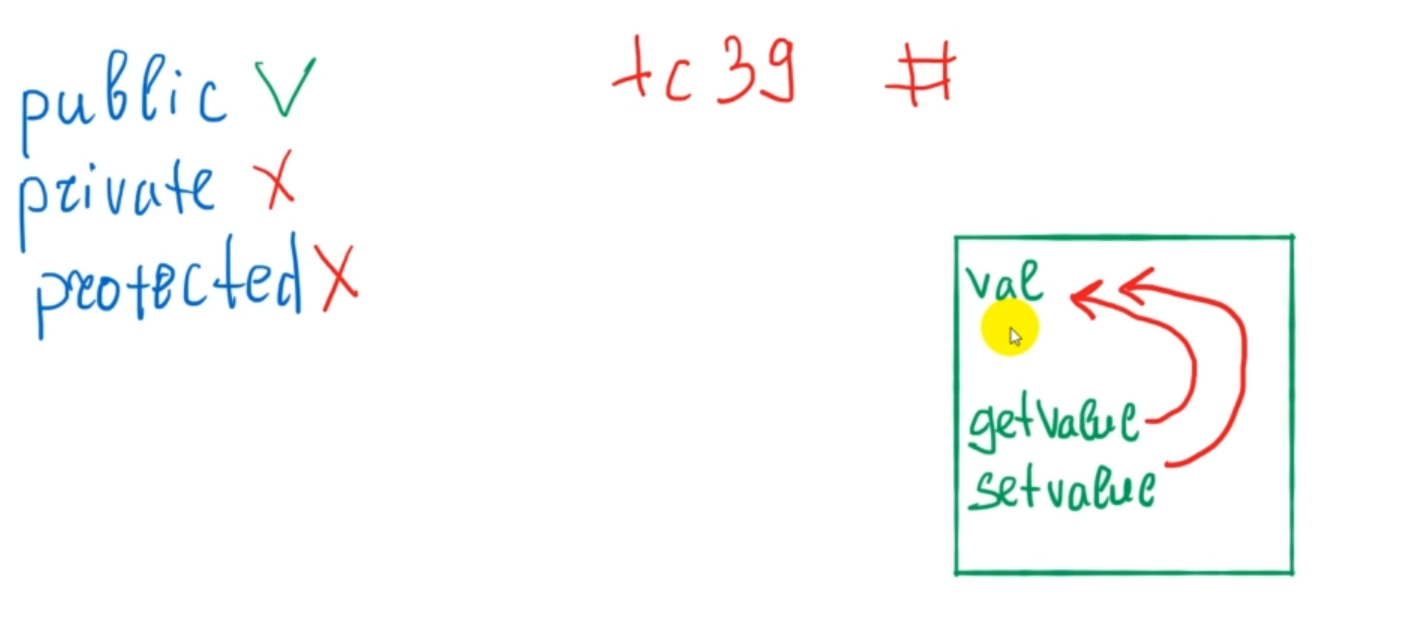 public V
private X
protected X
tc39 #
val
getvalue
setvalue